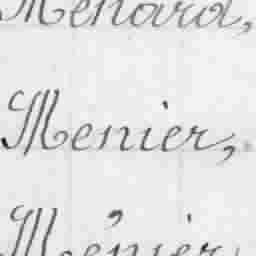 Menard,
Menier,
Ménier,